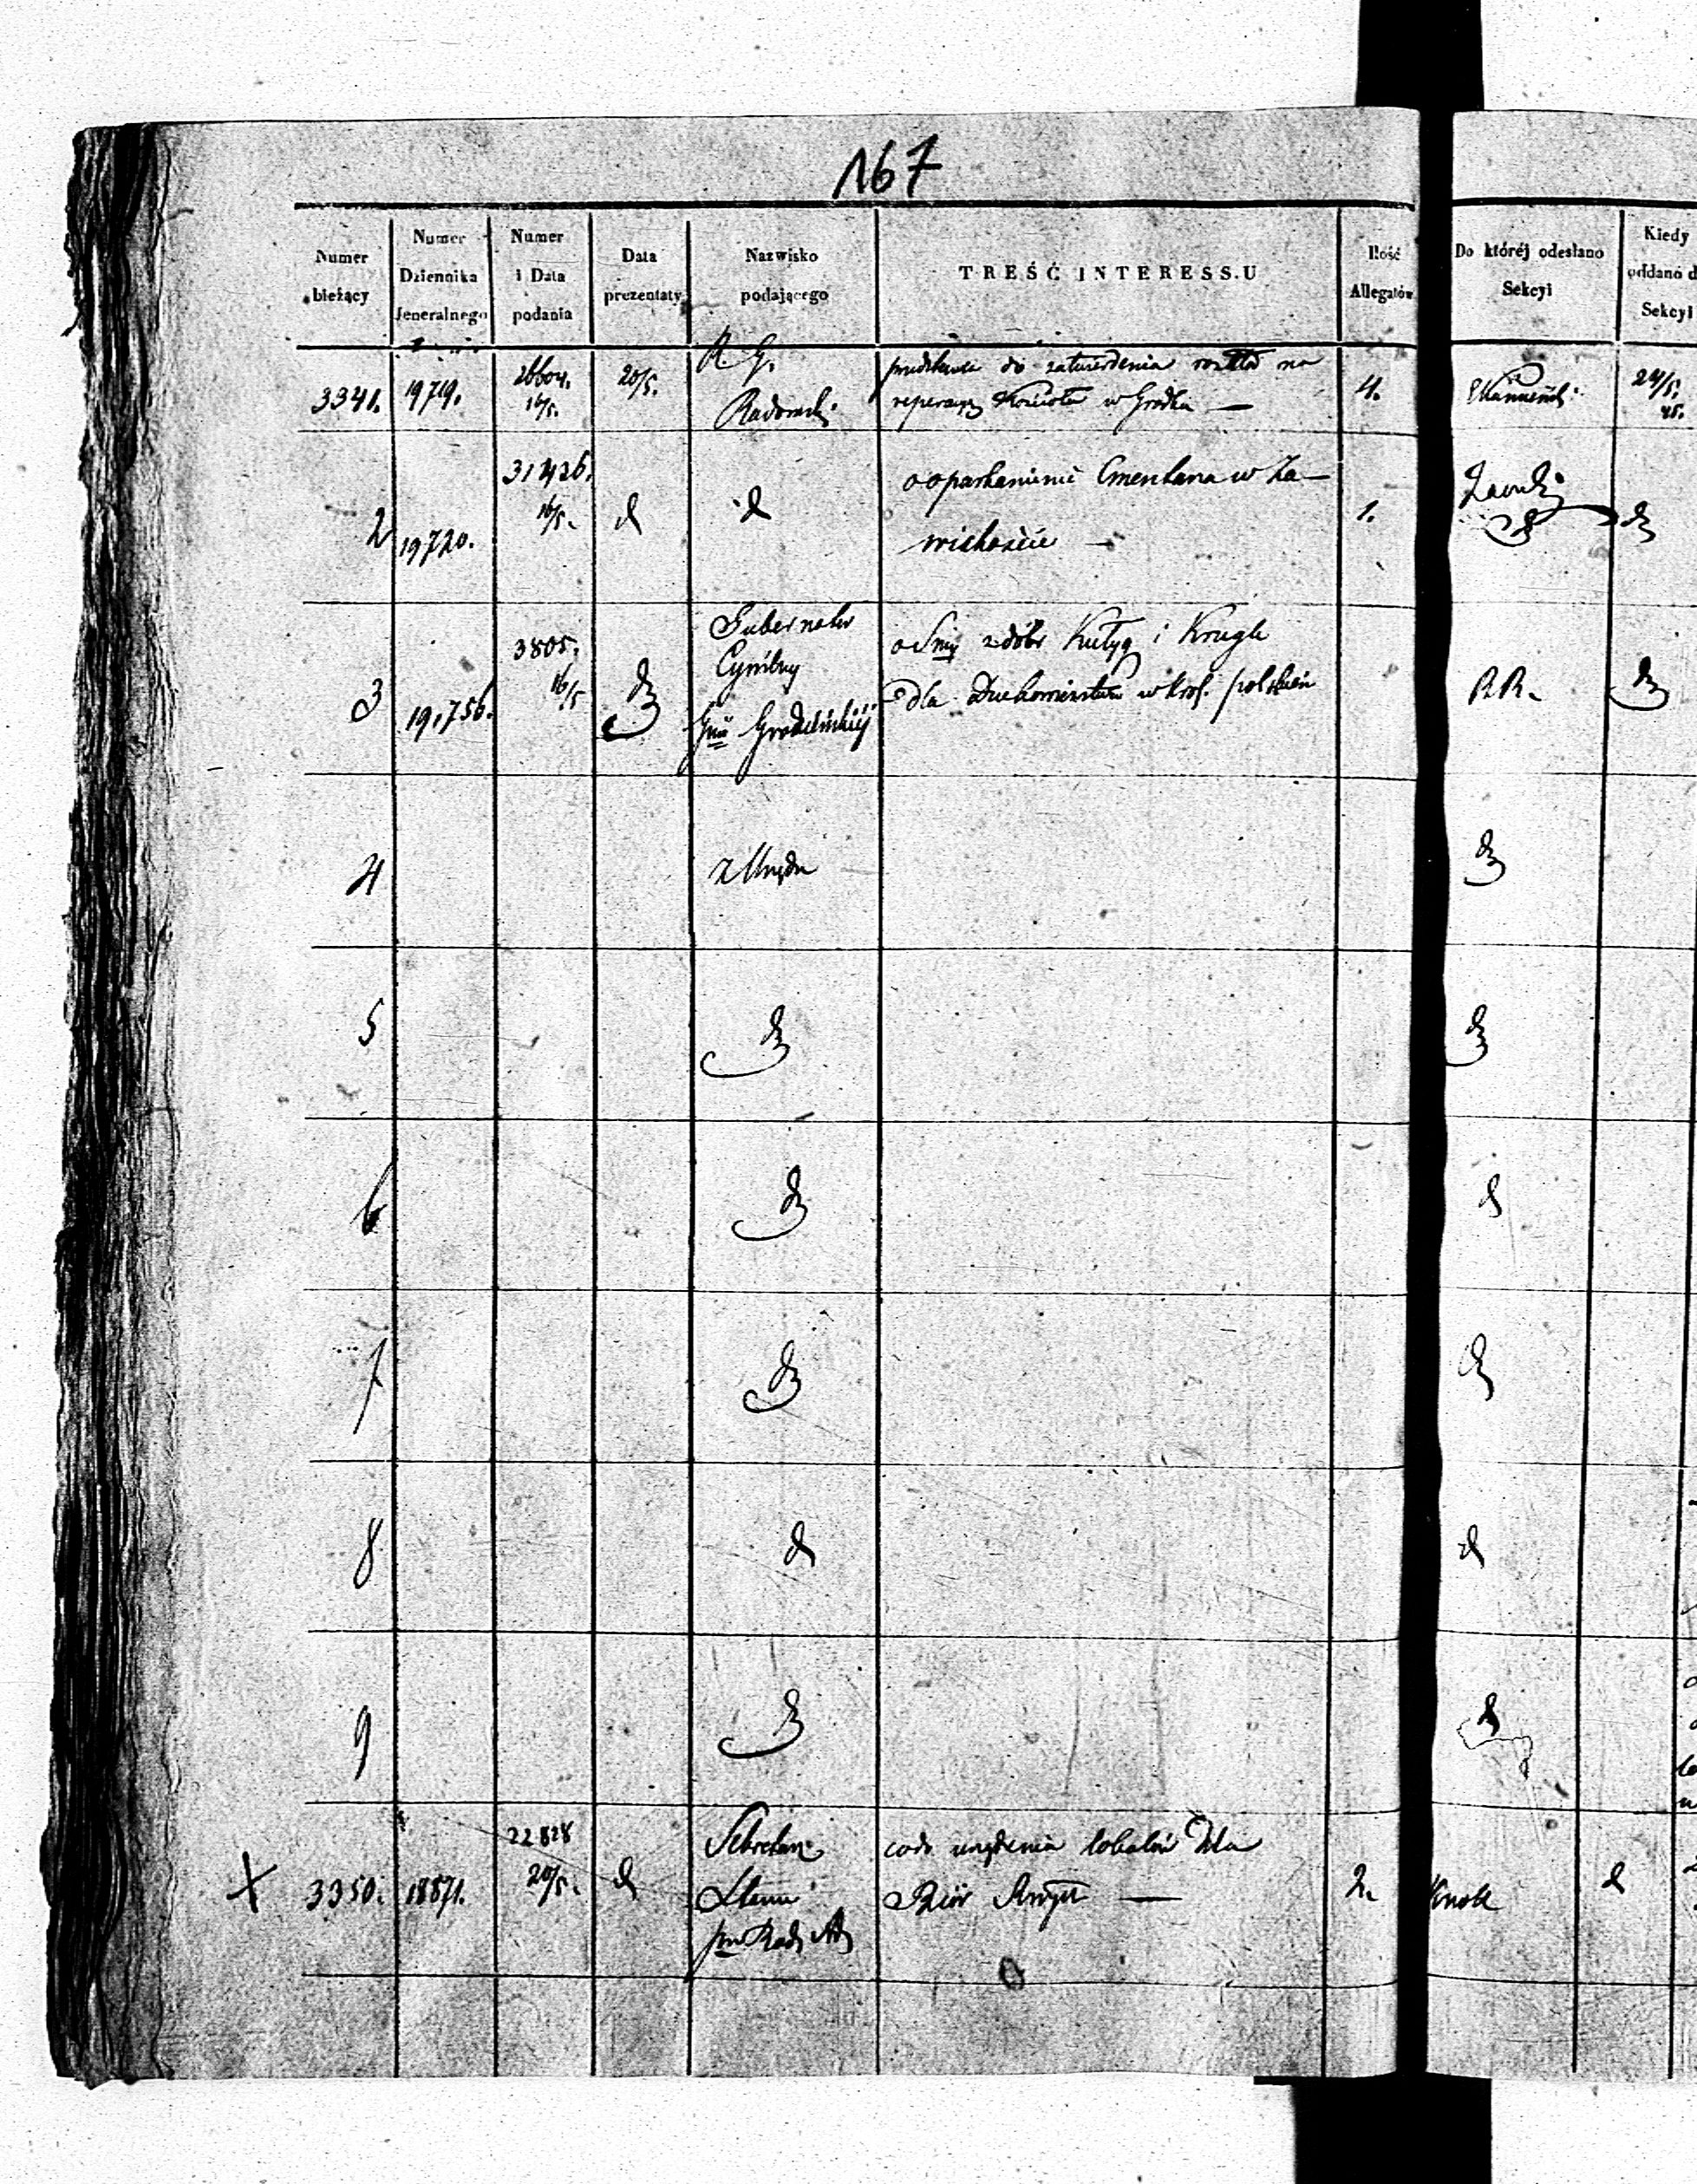 167
Numer bieżący
Numer Dziennika Jeneralnego
Numer i Data podania
Data prezentaty
Nazwisko podającego
TREŚĆ INTERESSU
Ilość Allegatów
Do któréj odesłano Sekcyi
Kiedy oddano d
Sekcyi
3341. 19719. 26604. 16/5. 20/5. R. G. Radomski do zatwierdzenia rozkład na
Kościoła w Gródku — 4. 24/5. 45.
2 19720. 31426. 16/5. d d o oparkanienie Cmentarza w Za-
wichoście — 1. d d
3 19,756. 3805. 16/5 d Gubernator
Cywilny
Grodzieńskiéj z dóbr i
dla Duchowieństwa w Król. polskiém RR. d
4 z Urzędu d
5 d d
6 d d
7 d d
8 d d
9 d d
X 3350. 18871. 22828 20/5. d Sekretarz
Stanu
przy Radz Ad
urządzenia lokalów dla
Biór — 2. d